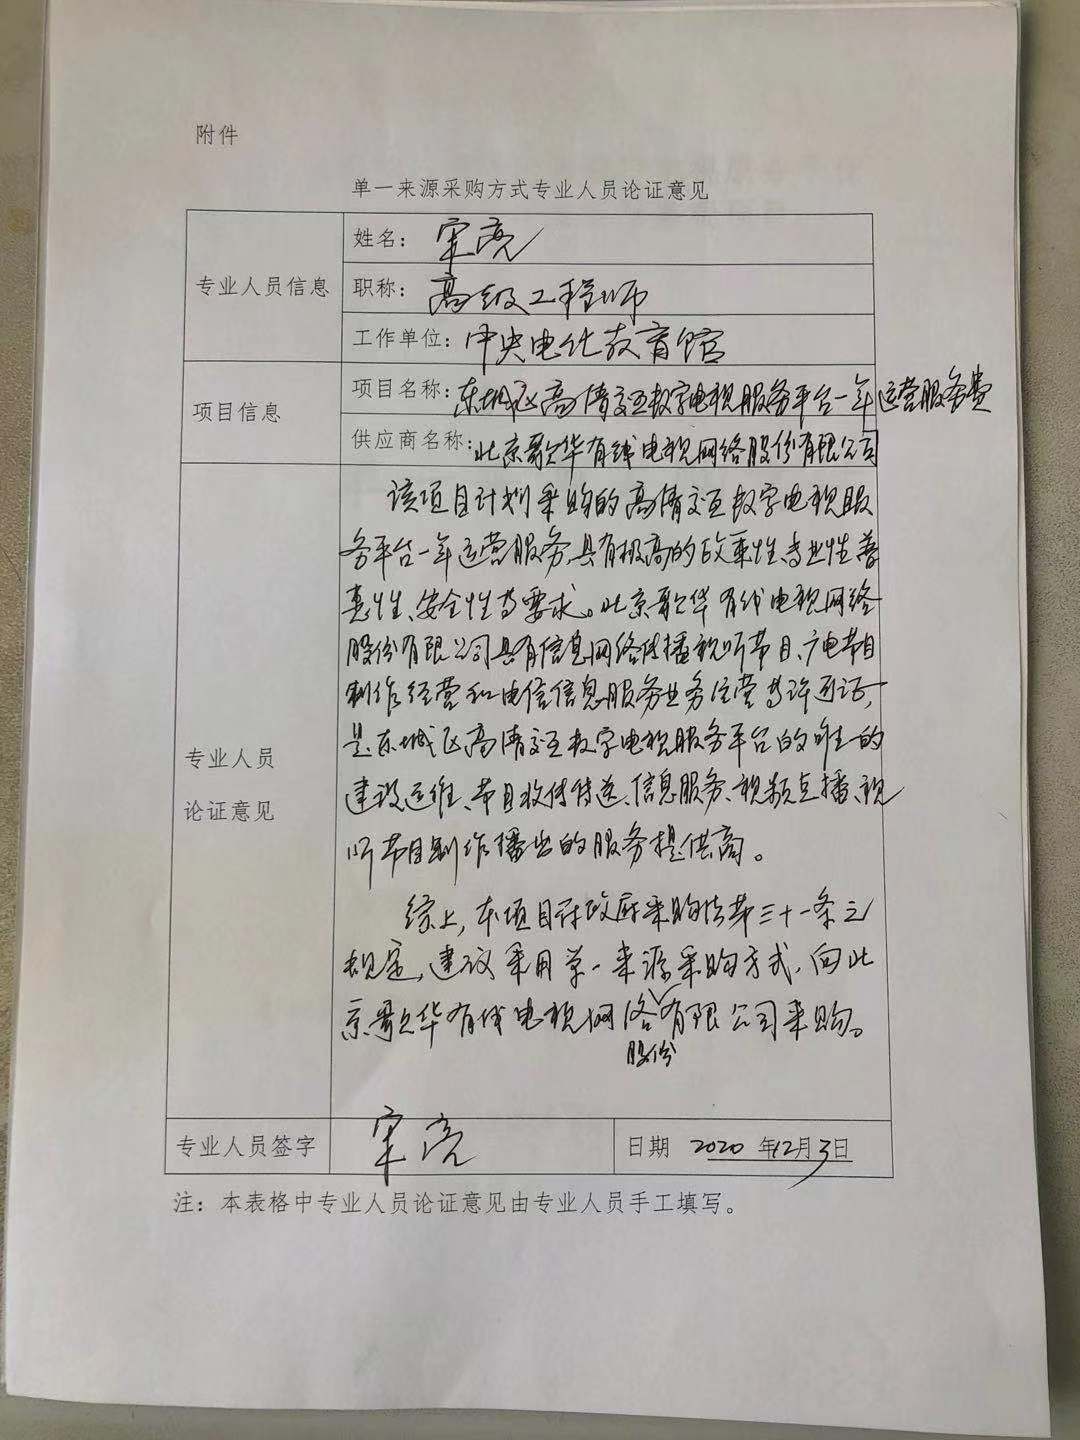 附件
单一来源采购方式专业人员论证意见
专业人员信息
姓名：亮
职称：高级工程师
工作单位：中央电化教育馆
项目信息
项目名称：东城区高清交互数字电视服务平台一年运营服务费
供应商名称：北京歌华有线电视网络股份有限公司
专业人员
论证意见
该项目计划采购的高清交互数字电视服
务平台一年运营服务，具有极高的政策性、专业性、普
惠性、安全性等要求。北京歌华有线电视网络
股份有限公司具有信息网络传播视听节目、广电节目
制作经营和电信信息服务业务经营等许可证，
是东城区高清交互数字电视服务平台的唯一的
建设运维、节目收转传送、信息服务、视频点播、视
听节目制作播出的服务提供商。
综上，本项目符政府采购法第三十一条之
规定，建议采用单一来源采购方式，向北
京歌华有线电视网络股份有限公司采购。
专业人员签字
亮
日期 2020年12月3日
注：本表格中专业人员论证意见由专业人员手工填写。